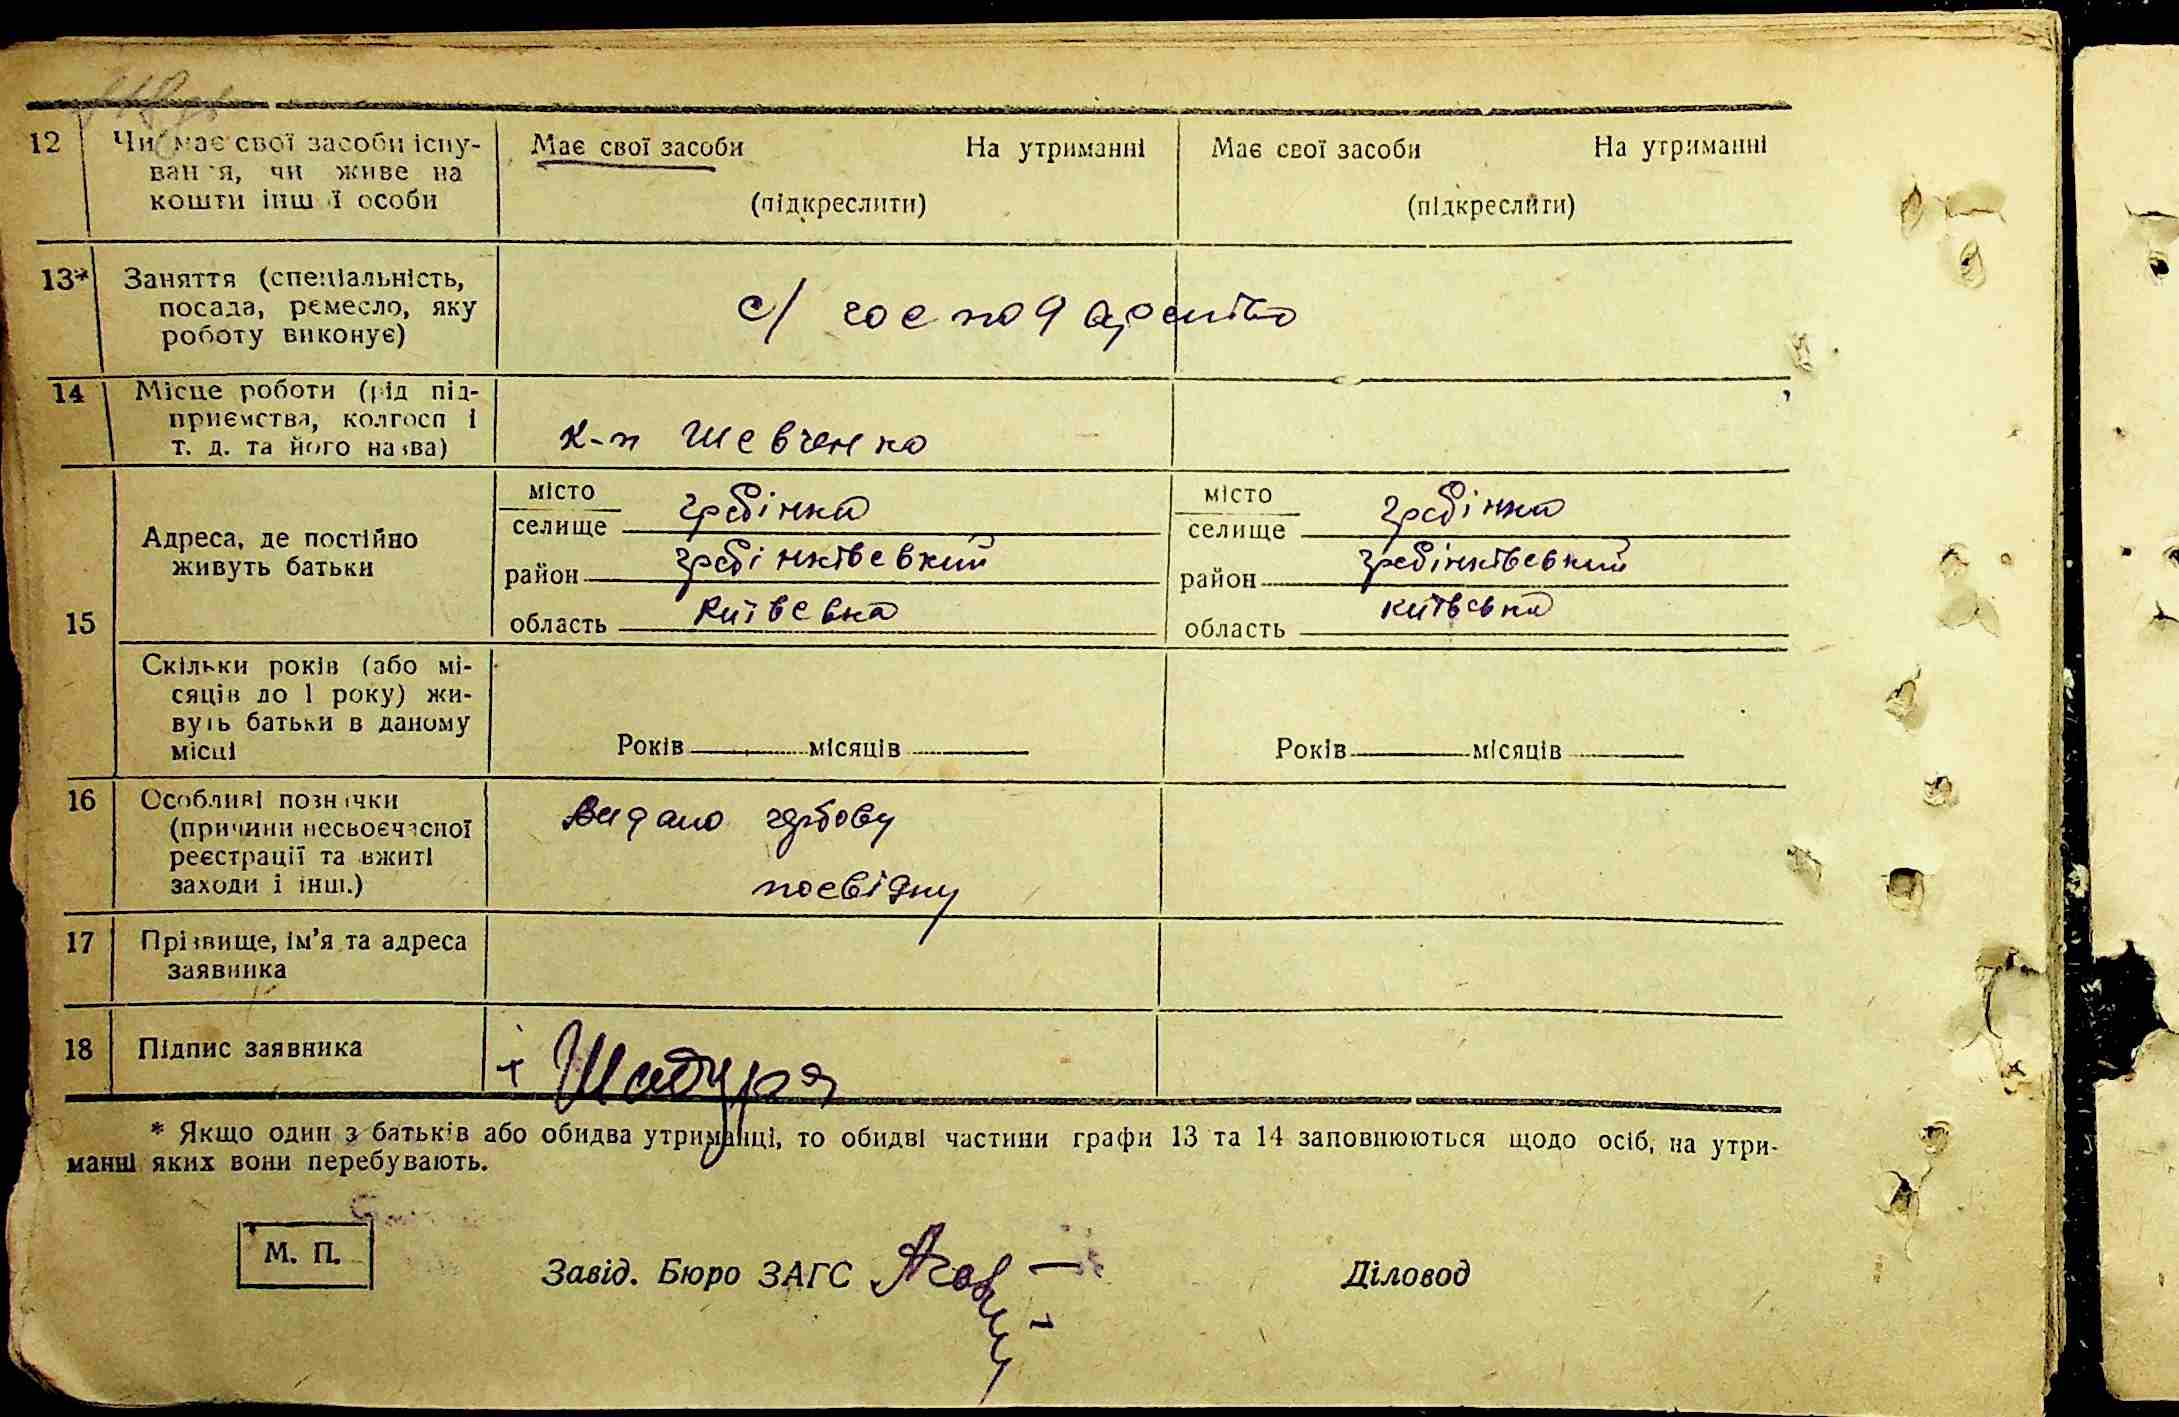 12 Чи має свої засоби існу- Має свої засоби На утриманні Має свої засоби На утриманні
вання, чи живе на
кошти іншої особи (підкреслити) (підкреслити)
13* Заняття (спеціальність,
посада, ремесло, яку с/ господарство
роботу виконує)
14 Місце роботи (рід під-
приємства, колгосп і к-п Шевченко
т. д. та його назва)
місто гребінка місто гребінка
селище селище
Адреса, де постійно
живуть батьки район гребінківський район гребінківський
15 область Київська область київська
Скільки років (або мі-
сяців до 1 року) жи-
вуть батьки в даному
місці Років місяців Років місяців
16 Особливі позначки Видано гербову
(причини несвоєчасної
реєстрації та вжиті
заходи і інш.) посвідку
17 Прізвище, ім'я та адреса
заявника
18 Підпис заявника + Шабура
* Якщо один з батьків або обидва утриманці, то обидві частини графи 13 та 14 заповнюються щодо осіб, на утри-
манні яких вони перебувають.
М. П. Завід. Бюро ЗАГС Діловод